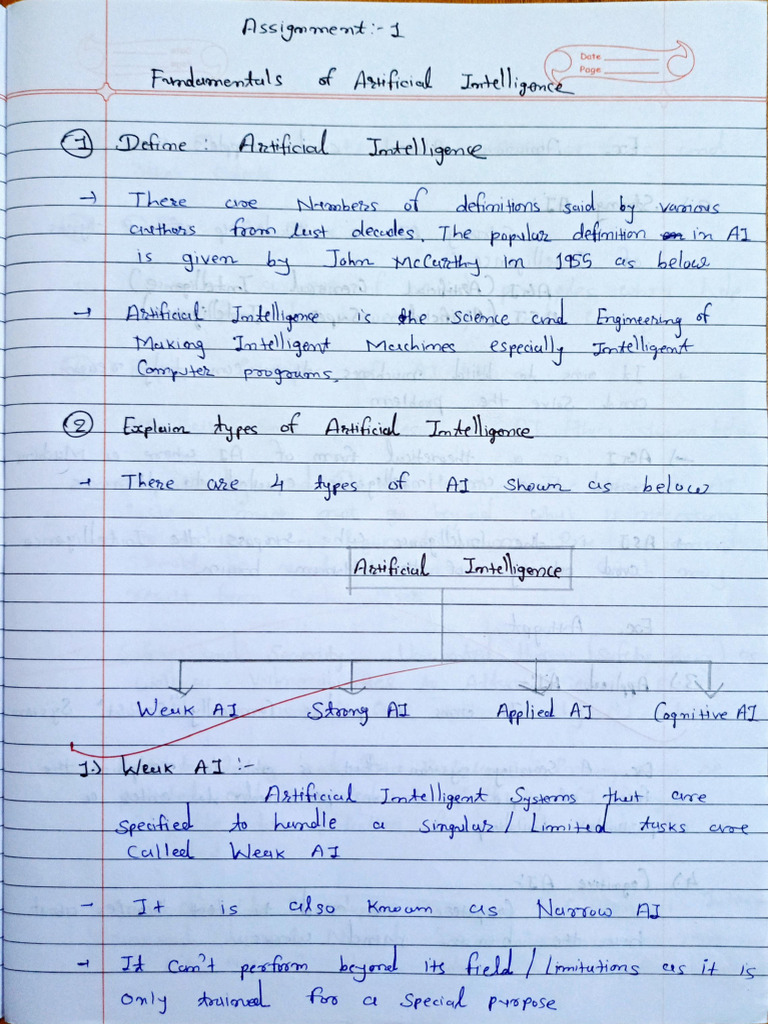 Assignment:- 1
Date
Page
Fundamentals of Artificial Intelligence
1 Define : Artificial Intelligence
→ There are Numbers of definitions said by various
authors from last decades. The popular definition in AI
is given by John McCarthy in 1955 as below
→ Artificial Intelligence is the science and Engineering of
Making Intelligent Machines especially Intelligent
Computer programs.
2 Explain types of Artificial Intelligence
→ There are 4 types of AI shown as below
Artificial Intelligence
Weak AI Strong AI Applied AI Cognitive AI
1.) Weak AI :-
Artificial Intelligent Systems that are
specified to handle a singular / Limited tasks are
called Weak AI
- It is also known as Narrow AI
→ It can't perform beyond its field / limitations as it is
only trained for a special prpose